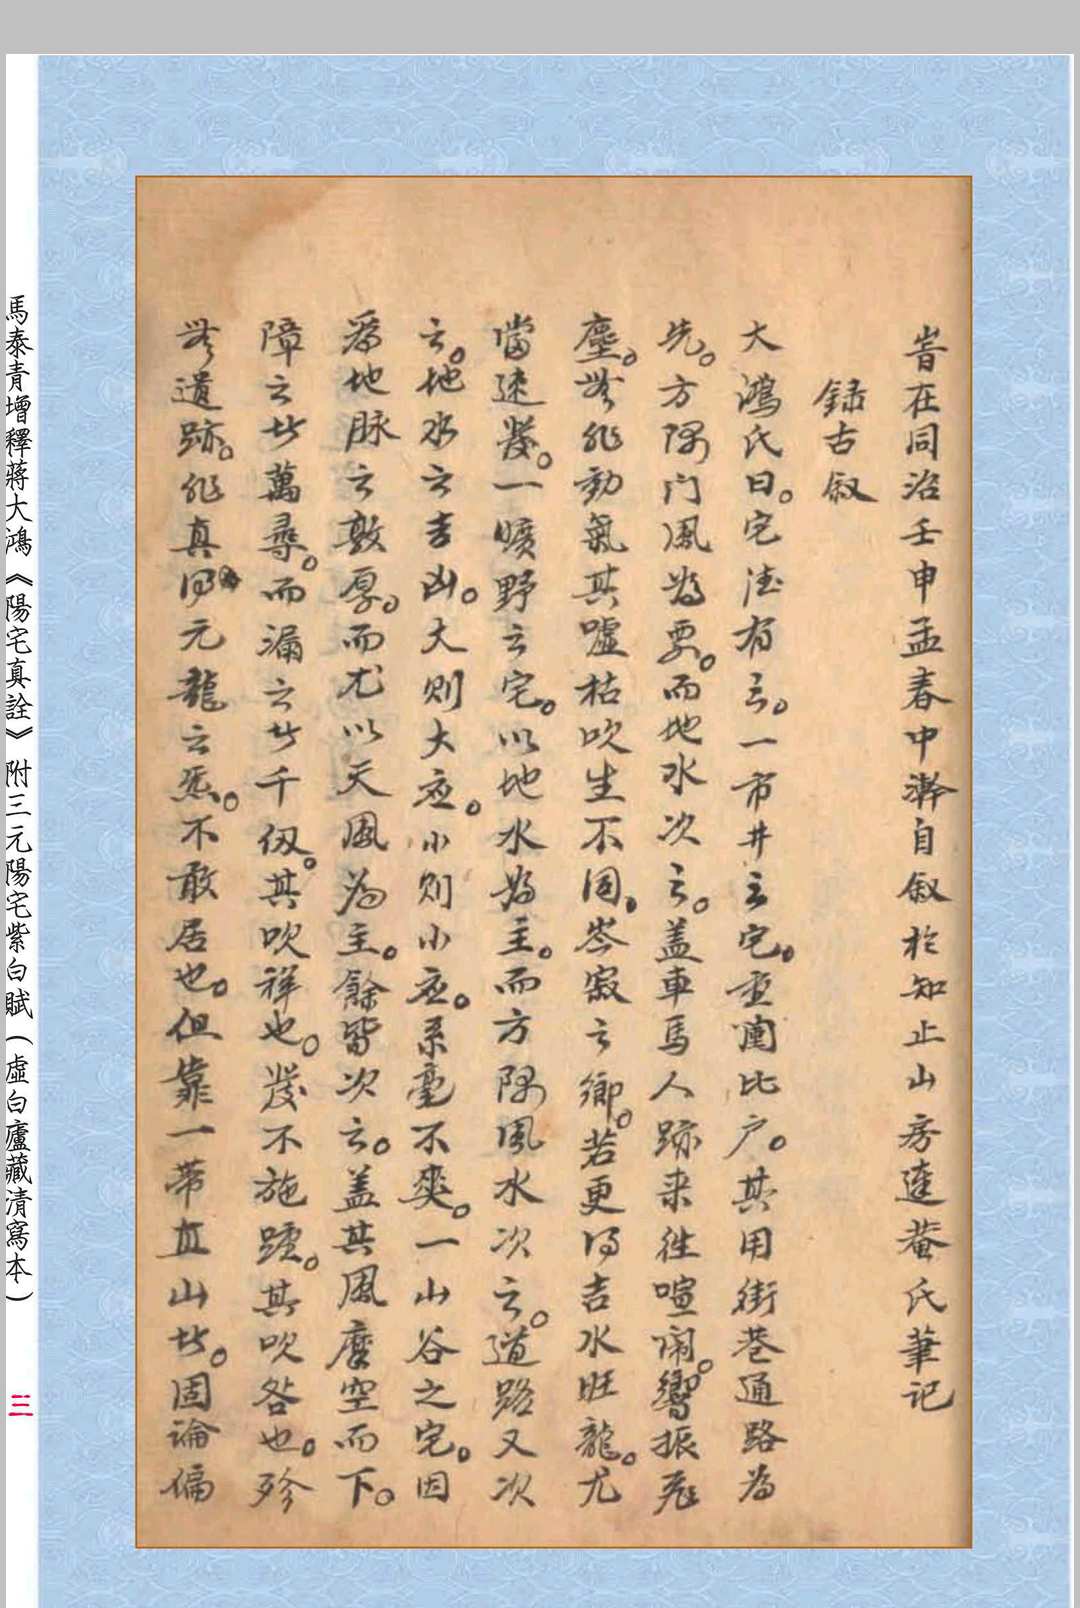 旹在同治壬申孟春中澣自叙於知止山房達菴氏筆記
録古叙
大鴻氏曰宅法有三一市井之宅重闉比户其用街巷通路为
先方隅门風为要而地水次之蓋車馬人跡来往喧闹響振
塵無非動氣其噓枯吹生不同岑寂之鄉若更得吉水旺龍尤
當速發一曠野之宅以地水为主而方隅風水次之道路又次
之地水之吉凶大則大应小則小应系毫不爽一山谷之宅因
为地脉之敦厚而尤以天風为主餘皆次之蓋其風摩空而下
障之萬尋而漏之千仭其吹祥也發不施踵其吹咎也殄
無遺跡非真得元龍之炁不敢居也但靠一帶直山固論偏
馬泰青增釋蔣大鴻《陽宅真詮》附三元陽宅紫白賦（虛白廬藏清寫本）
三